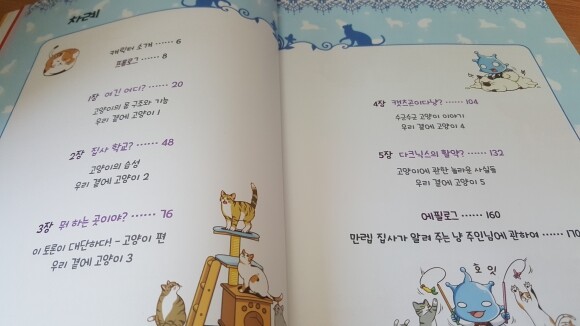 차례
캐릭터 소개 ······ 6
프롤로그 ······ 8
1장 여긴 어디? ······ 20
고양이의 몸 구조와 기능
우리 곁에 고양이 1
2장 집사 학교? ······ 48
고양이의 습성
우리 곁에 고양이 2
3장 뭐 하는 곳이야? ······ 76
이 토론이 대단하다! - 고양이 편
우리 곁에 고양이 3
4장 캣츠곤이다냥? ······ 104
수군수군 고양이 이야기
우리 곁에 고양이 4
5장 다크닉스의 활약? ······ 132
고양이에 관한 놀라운 사실들
우리 곁에 고양이 5
에필로그 ······ 160
만렙 집사가 알려 주는 냥 주인님에 관하여 ······ 170
호잇